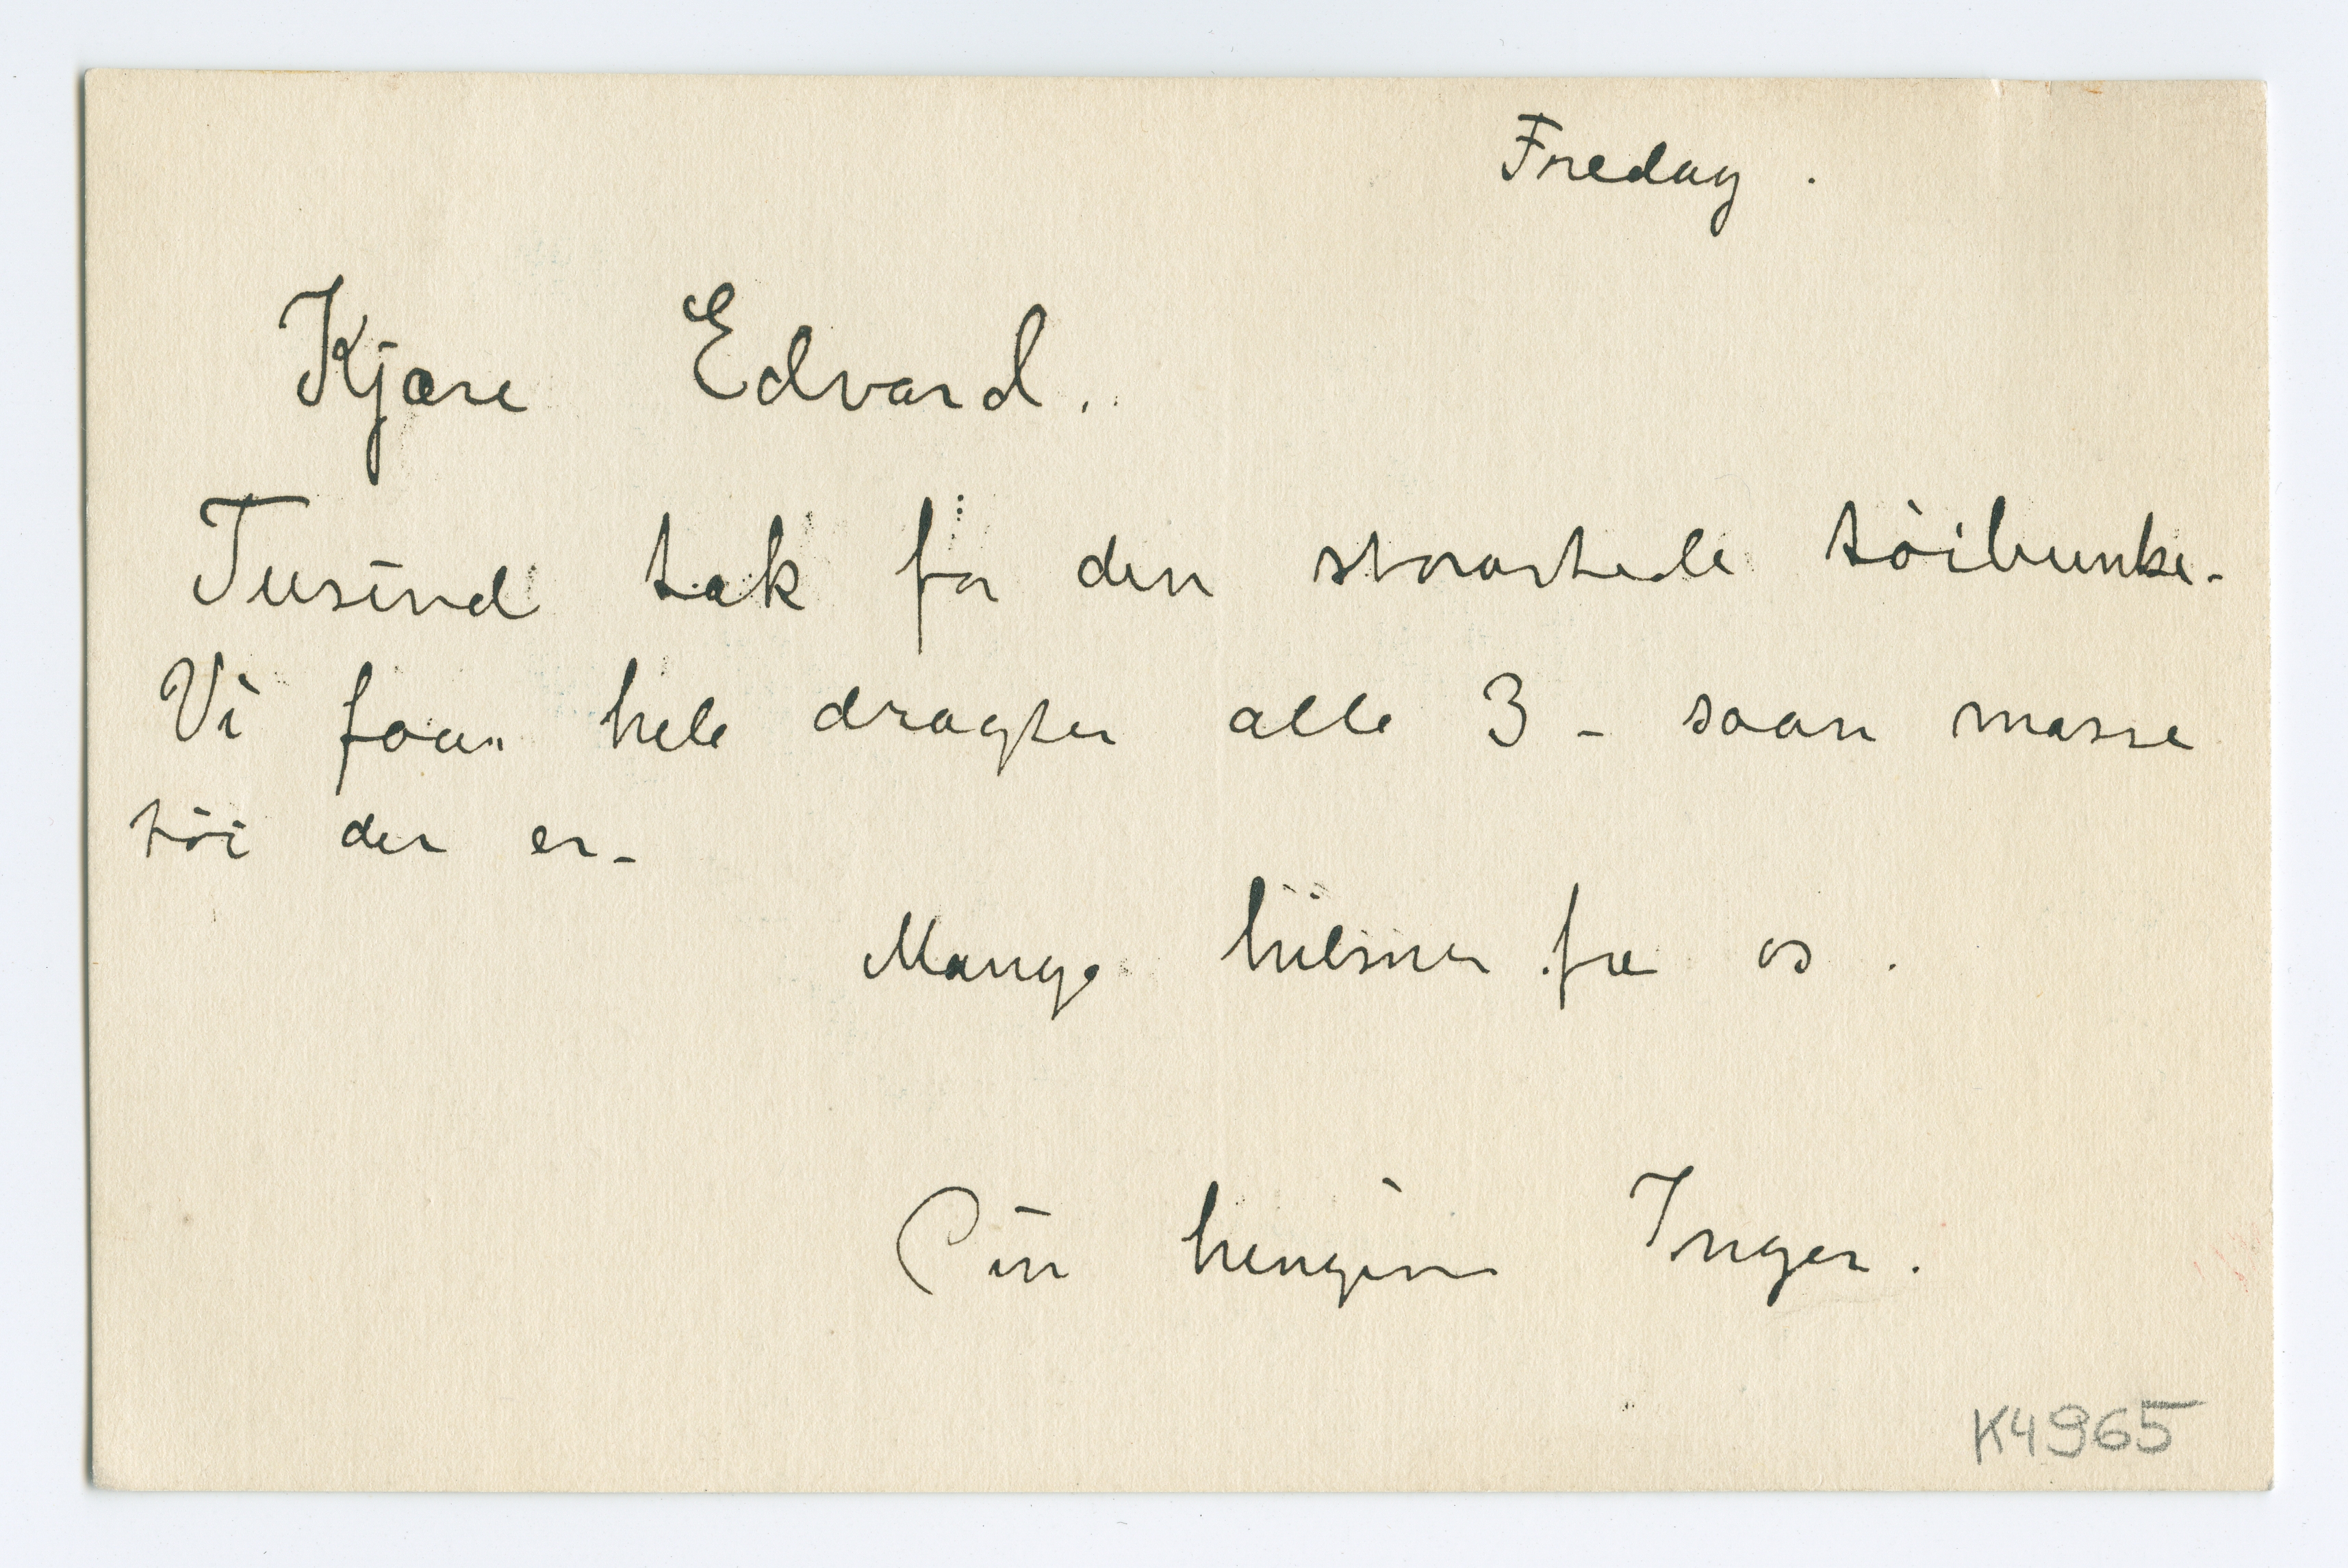 Fredag .
Kjære Edvard.
Tusind tak for den storartede töibunke.
Vi faar hele dragter alle 3 – saan masse
töi der er –
Mange hilsner fra os .
Din hengivne Inger .
K4965